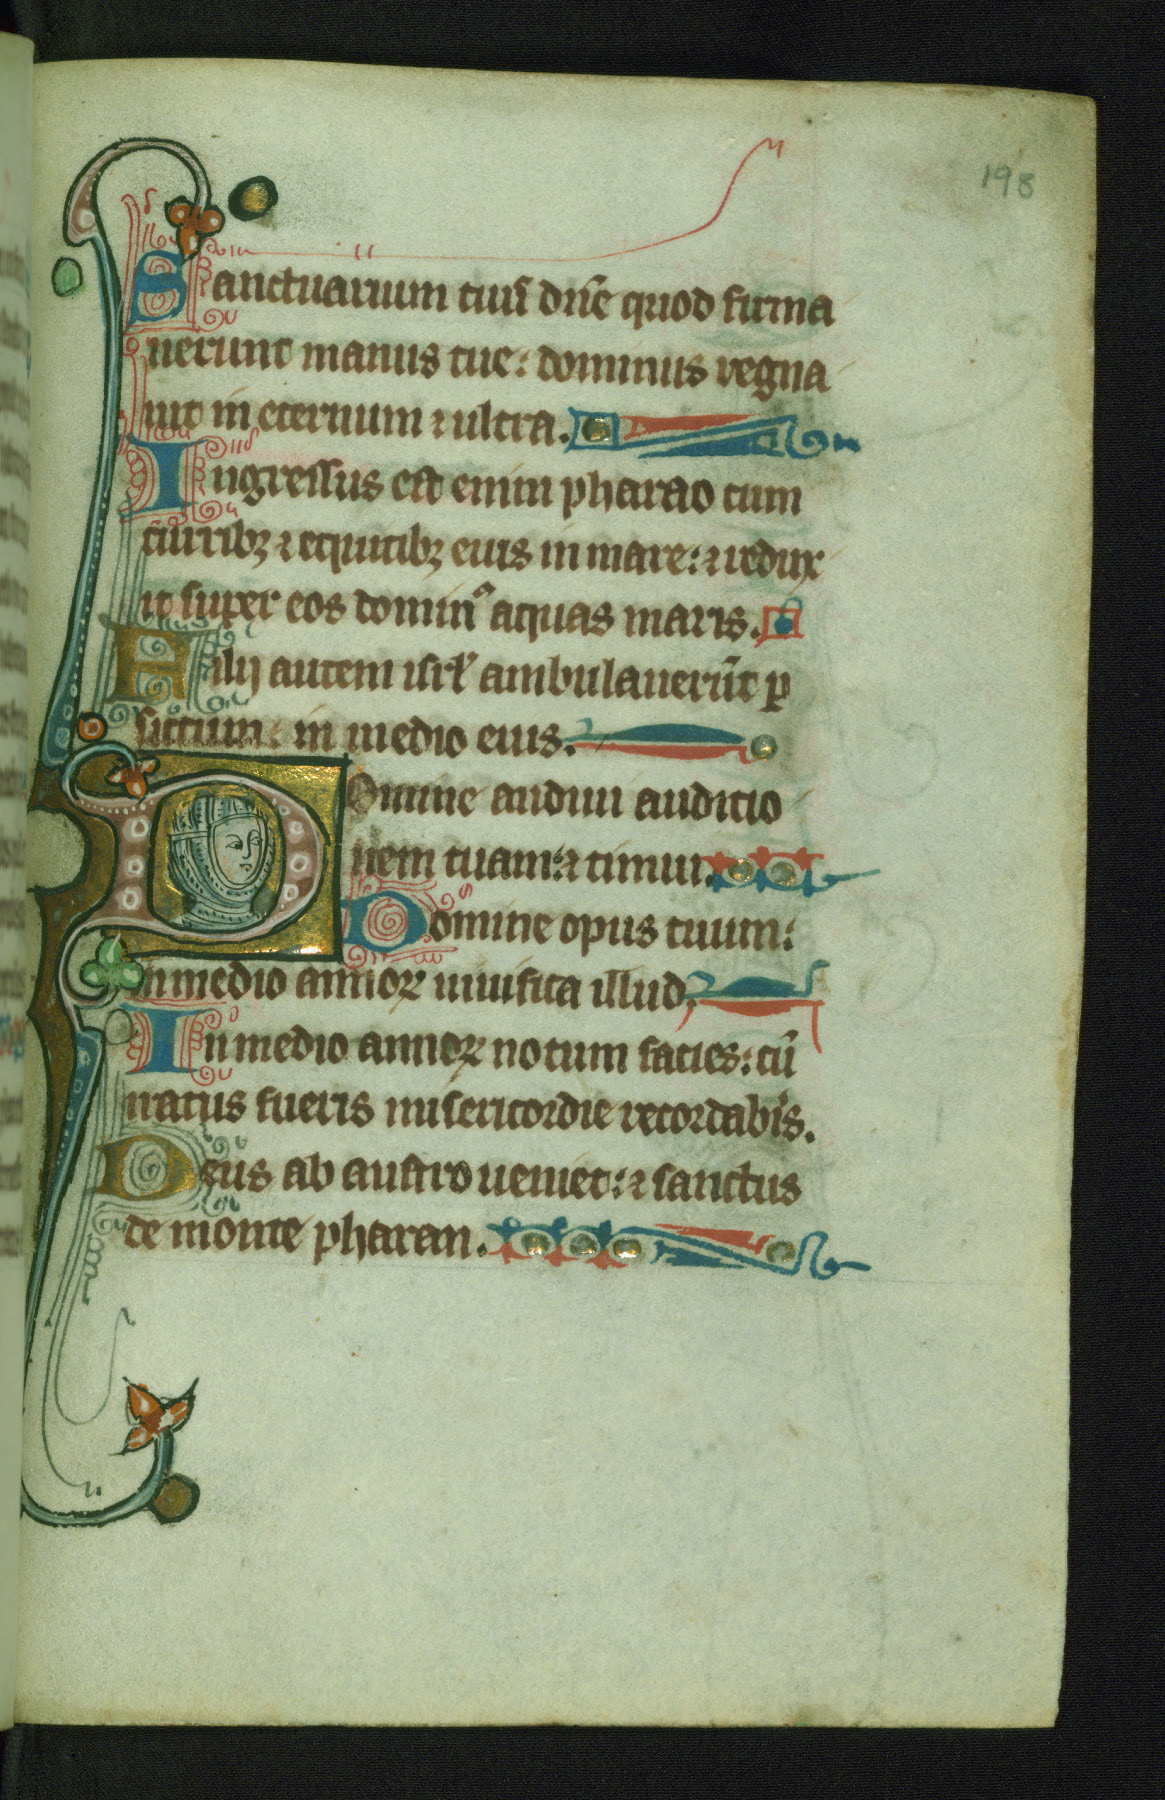 198
Sanctuarium tuũ dñe quod firma
uerunt manus tue: dominus regna
bit in eternum ⁊ ultra.
Ingressus est enim pharao cum
curribꝫ ⁊ equitibꝫ eius in mare: ⁊ redux
it super eos dominꝰ aquas maris.
Filij autem isrl̃ ambulauerũt p
siccum: in medio eius.
Domine audiui auditio
nem tuam: ⁊ timui.
Domine opus tuum:
in medio annoꝝ uiuifica illud.
In medio annoꝝ notum facies: cũ
iratus fueris misericordie recordabis.
Deus ab austro ueniet: ⁊ sanctus
de monte pharan.